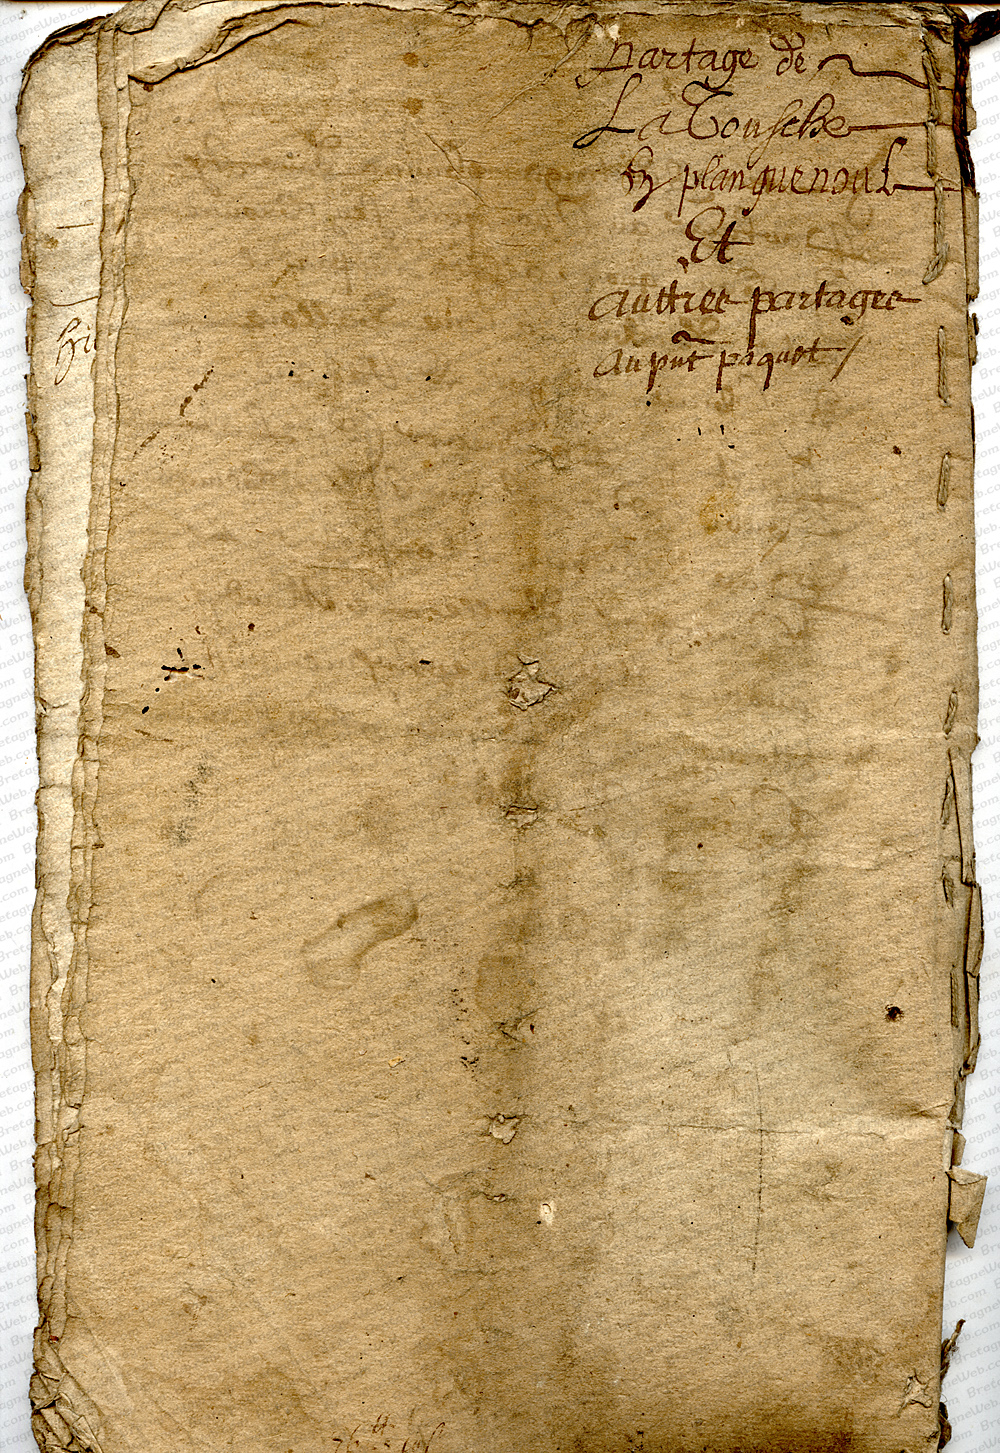 partage de
La Tousche
En planguenoul
Et
auttres partages
au pnt paquet /